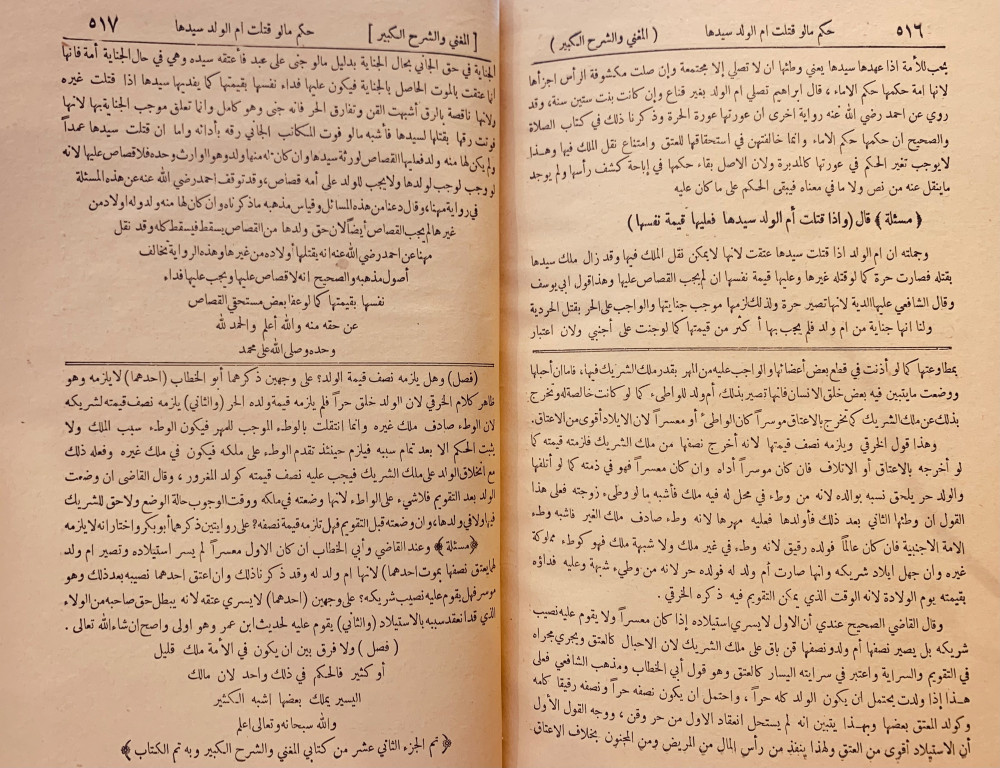 ٥١٦ حكم مالو قتلت ام الولد سيدها ( المغني والشرح الكبير )
يجب للأمة اذا عهدها سيدها يعني وطئها ان لا تصلي إلا مجتمعة وإن صلت مكشوفة الرأس اجزأها
لانها امة حكمها حكم الاماء ، قال ابراهيم تصلي ام الولد بغير قناع وإن كانت بنت ستين سنة، وقد
روي عن احمد رضي الله عنه رواية اخرى ان عورتها عورة الحرة وقد ذكرنا ذلك في كتاب الصلاة
والصحيح ان حكمها حكم الاماء وانما خالفتهن في استحقاقها للعتق وامتناع نقل الملك فيها وهذا
لا يوجب تغير الحكم في عورتها كالمدبرة ولان الاصل بقاء حكمها في إباحة كشف رأسها ولم يوجد
ماينقل عنه من نص ولا ما في معناه فيبقى الحكم على ما كان عليه
﴿ مسئلة ﴾ قال (واذا قتلت أم الولد سيدها فعليها قيمة نفسها)
وجملته ان ام الولد اذا قتلت سيدها عتقت لانها لا يمكن نقل الملك فيها وقد زال ملك سيدها
بقتله فصارت حرة كما لو قتله غيرها وعليها قيمة نفسها ان لم يجب القصاص عليها وهذا قول ابي يوسف
وقال الشافعي عليها الدية لانها تصير حرة ولذلك لزمها موجب جنايتها والواجب على الحر بقتل الحر دية
ولنا انها جناية من ام ولد فلم يجب بها أكثر من قيمتها كما لو جنت على أجنبي ولان اعتبار
بمطاوعتها كما لو أذنت في قطع بعض أعضائها والواجب عليه من المهر بقدر ملك الشريك فيها، فاما ان أحبلها
ووضعت ما يتبين فيه بعض خلق الانسان فانها تصير بذلك أم ولد للواطىء كما لو كانت خالصة له وتخرج
بذلك عن ملك الشريك كما تخرج بالاعتاق موسراً كان الواطىء أو معسراً لان الايلاد أقوى من الاعتاق.
وهذا قول الخرقي ويلزمه نصف قيمتها لانه أخرج نصفها من ملك الشريك فلزمته قيمته كما
لو أخرجه بالاعتاق أو الاتلاف فان كان موسراً أداه وان كان معسراً فهو في ذمته كما لو أتلفها
والولد حر يلحق نسبه بوالده لانه من وطء في محل له فيه ملك فأشبه ما لو وطىء زوجته فعلى هذا
القول ان وطئها الثاني بعد ذلك فأولدها فعليه مهرها لانه وطء صادف ملك الغير فاشبه وطء
الامة الاجنبية فان كان عالماً فولده رقيق لانه وطء في غير ملك ولا شبهة ملك فهو كوطء مملوكة
غيره وان جهل ايلاد شريكه وانها صارت أم ولد له فولده حر لانه من وطىء شبهة وعليه فداؤه
بقيمته يوم الولادة لانه الوقت الذي يمكن التقويم فيه ذكره الخرقي .
وقال القاضي الصحيح عندي أن الاول لا يسري استيلاده إذا كان معسراً ولا يقوم عليه نصيب
شريكه بل يصير نصفها أم ولد ونصفها قن باق على ملك الشريك لان الاحبال كالعتق ويجري مجراه
في التقويم والسراية واعتبر في سرايته اليسار كالعتق وهو قول أبي الخطاب ومذهب الشافعي فعلى
هذا إذا ولدت يحتمل ان يكون الولد كله حراً ، واحتمل ان يكون نصفه حراً ونصفه رقيقا كامه
وكولد المعتق بعضها وبهذا يتبين انه لم يستحل انعقاد الاول من حر وقن ، ووجه القول الأول
أن الاستيلاد أقوى من العتق ولهذا ينفذ من رأس المال من المريض ومن المجنون بخلاف الاعتاق
[ المغني والشرح الكبير ] حكم مالو قتلت ام الولد سيدها ٥١٧
الجناية في حق الجاني بحال الجناية بدليل مالو جنى على عبد فأعتقه سيده وهي في حال الجناية أمة فانها
انما عتقت بالموت الحاصل بالجناية فيكون عليها فداء نفسها بقيمتها كما يفديها سيدها اذا قتلت غيره
ولانها ناقصة بالرق أشبهت القن وتفارق الحر فانه جنى وهو كامل وانما تعلق موجب الجناية بها لانها
فوتت رقها بقتلها لسيدها فأشبه مالو فوت المكاتب الجاني رقه بأدائه واما ان قتلت سيدها عمداً
ولم يكن لها منه ولد فعليها القصاص لورثة سيدها وان كان له منها ولد وهو الوارث وحده فلا قصاص عليها لانه
لو وجب لوجب لولدها ولا يجب للولد على أمه قصاص، وقد توقف احمد رضي الله عنه عن هذه المسئلة
في رواية مهنا، وقال دعنا من هذه المسائل وقياس مذهبه ما ذكرناه وان كان لها منه ولد وله اولاد من
غيرها لم يجب القصاص أيضاً لان حق ولدها من القصاص يسقط فيسقط كله وقد نقل
مهنا عن احمد رضي الله عنه انه يقتلها أولاده من غيرها وهذه الرواية تخالف
أصول مذهبه والصحيح انه لا قصاص عليها ويجب عليها فداء
نفسها بقيمتها كما لو عفا بعض مستحقي القصاص
عن حقه منه والله أعلم والحمد لله
وحده وصلى الله على محمد
(فصل) وهل يلزمه نصف قيمة الولد؟ على وجهين ذكرهما أبو الخطاب (احدهما) لا يلزمه وهو
ظاهر كلام الخرقي لان الولد خلق حراً فلم يلزمه قيمة ولده الحر (والثاني) يلزمه نصف قيمته لشريكه
لان الوطء صادف ملك غيره وانما انتقلت بالوطء الموجب للمهر فيكون الوطء سبب الملك ولا
يثبت الحكم الا بعد تمام سببه فيلزم حينئذ تقدم الوطء على ملكه فيكون في ملك غيره وفعله ذلك
منع انخلاق الولد على ملك الشريك فيجب عليه نصف قيمته كولد المغرور ، وقال القاضي ان وضعت
الولد بعد التقويم فلا شيء على الواطىء لانها وضعته في ملكه ووقت الوجوب حالة الوضع ولا حق للشريك
فيها ولا في ولدها، وان وضعته قبل التقويم فهل تلزمه قيمة نصفه؟ على روايتين ذكرهما أبو بكر واختار انه لا يلزمه
﴿مسئلة﴾ وعند القاضي وأبي الخطاب ان كان الاول معسراً لم يسر استيلاده وتصير ام ولد
لهما يعتق نصفها بموت احدهما) لانها ام ولد له وقد ذكرنا ذلك وان اعتق احدهما نصيبه بعد ذلك وهو
موسر فهل يقوم عليه نصيب شريكه؟ على وجهين (احدهما) لا يسري عتقه لانه يبطل حق صاحبه من الولاء
الذي قد انعقد سببه بالاستيلاد (والثاني) يقوم عليه لحديث ابن عمر وهو اولى واصح ان شاء الله تعالى .
( فصل ) ولا فرق بين ان يكون في الأمة ملك قليل
أو كثير فالحكم في ذلك واحد لان مالك
اليسير يملك بعضها اشبه الكثير
والله سبحانه وتعالى اعلم
﴿ تم الجزء الثاني عشر من كتابي المغني والشرح الكبير وبه تم الكتاب ﴾